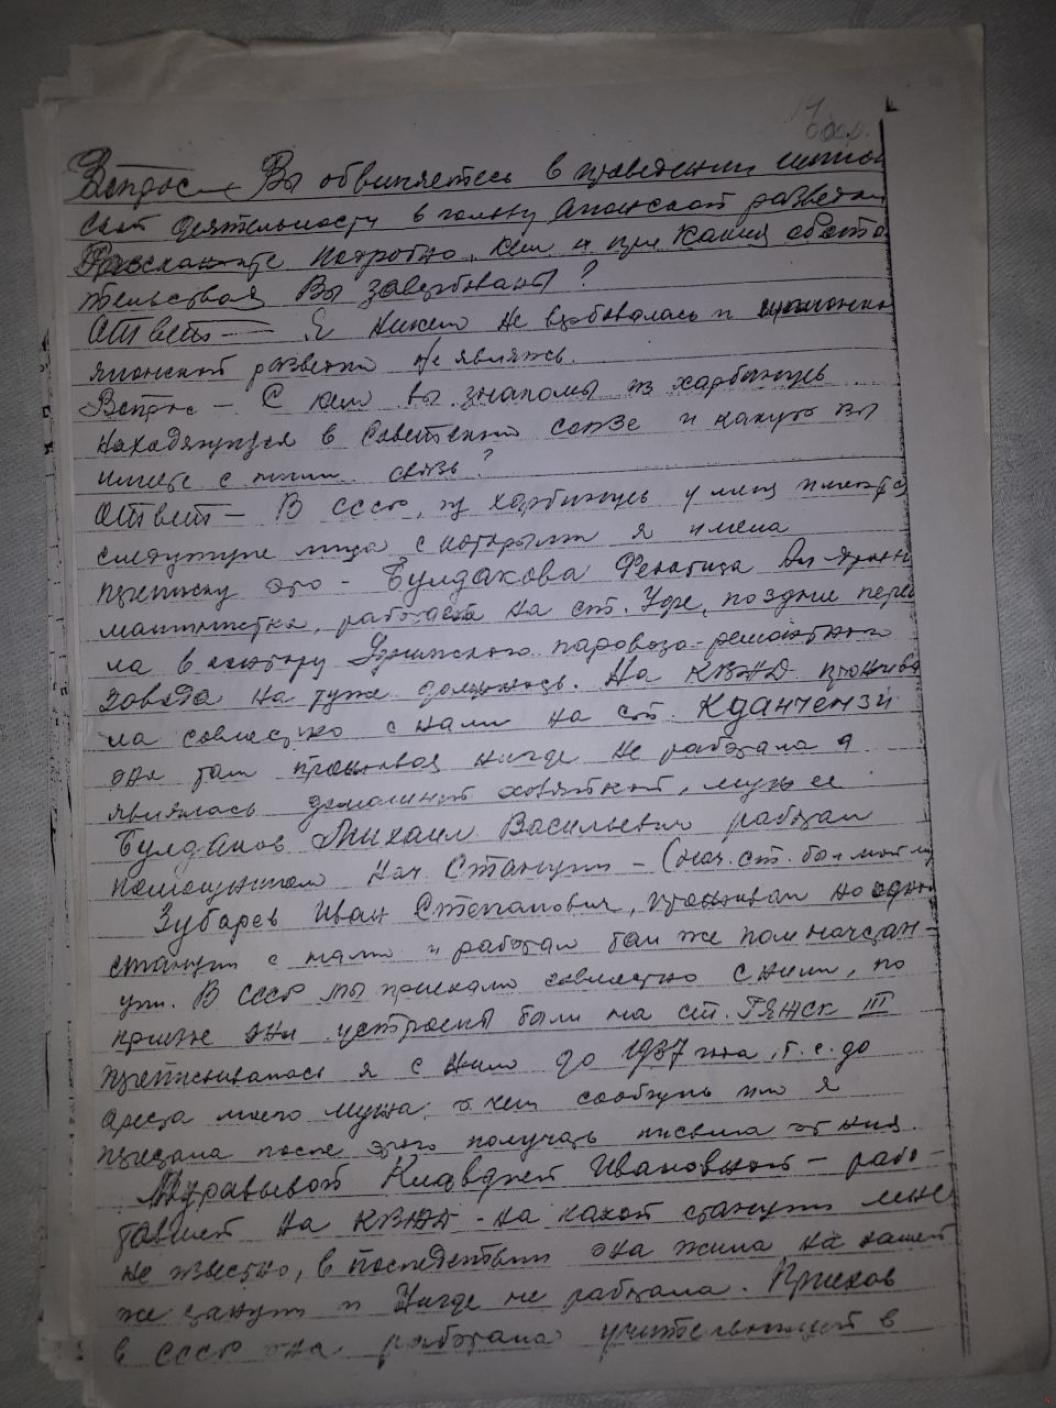 Вопрос — Вы обвиняетесь в проведении шпион
ской деятельности в пользу Японской разведки
Расскажите подробно, кем и при каких обсто
тельствах Вы завербованы?
Ответ — Я никем не вербовалась и шпионкой
японской разведки не являюсь.
Вопрос — С кем вы знакомы из харбинцев
находящихся в Советском союзе и какую вы
имеете с ними связь?
Ответ — В СССР, из харбинцев у меня имеются
следующие лица с которыми я имела
переписку это - Булдакова Фелатица
машинистка, работает на ст. Уфе, позднее пере
ла в контору Уфимского паровозо-ремонтного
завода на туже должность. На КВЖД прожива
ла совместно с нами на ст. Куанчензи
она там проживая нигде не работала а
являлась домашней хозяйкой, муж ее
Булдаков Михаил Васильевич работал
помощником нач. Станции - (нач. ст. был мой муж
Зубарев Иван Степанович, проживал на одной
станции с нами и работал там же пом начстан-
ции. В СССР мы приехали совместно с ними, по
приезде они устроены были на ст. Ряжск III
переписывалась я с ними до 1937 года, т. е. до
ареста моего мужа, о чем сообщив им я
перестала после этого получать письма от них.
Муравьевой Клавдией Ивановной - рабо-
тавшей на КВЖД - на какой станции мне
не известно, в последствии она жила на нашей
же станции и нигде не работала. Приехав
в СССР она работала учительницей в